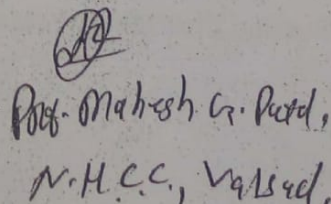 Prof. Mahesh G. Patel,
N.H.C.C., Valsad.